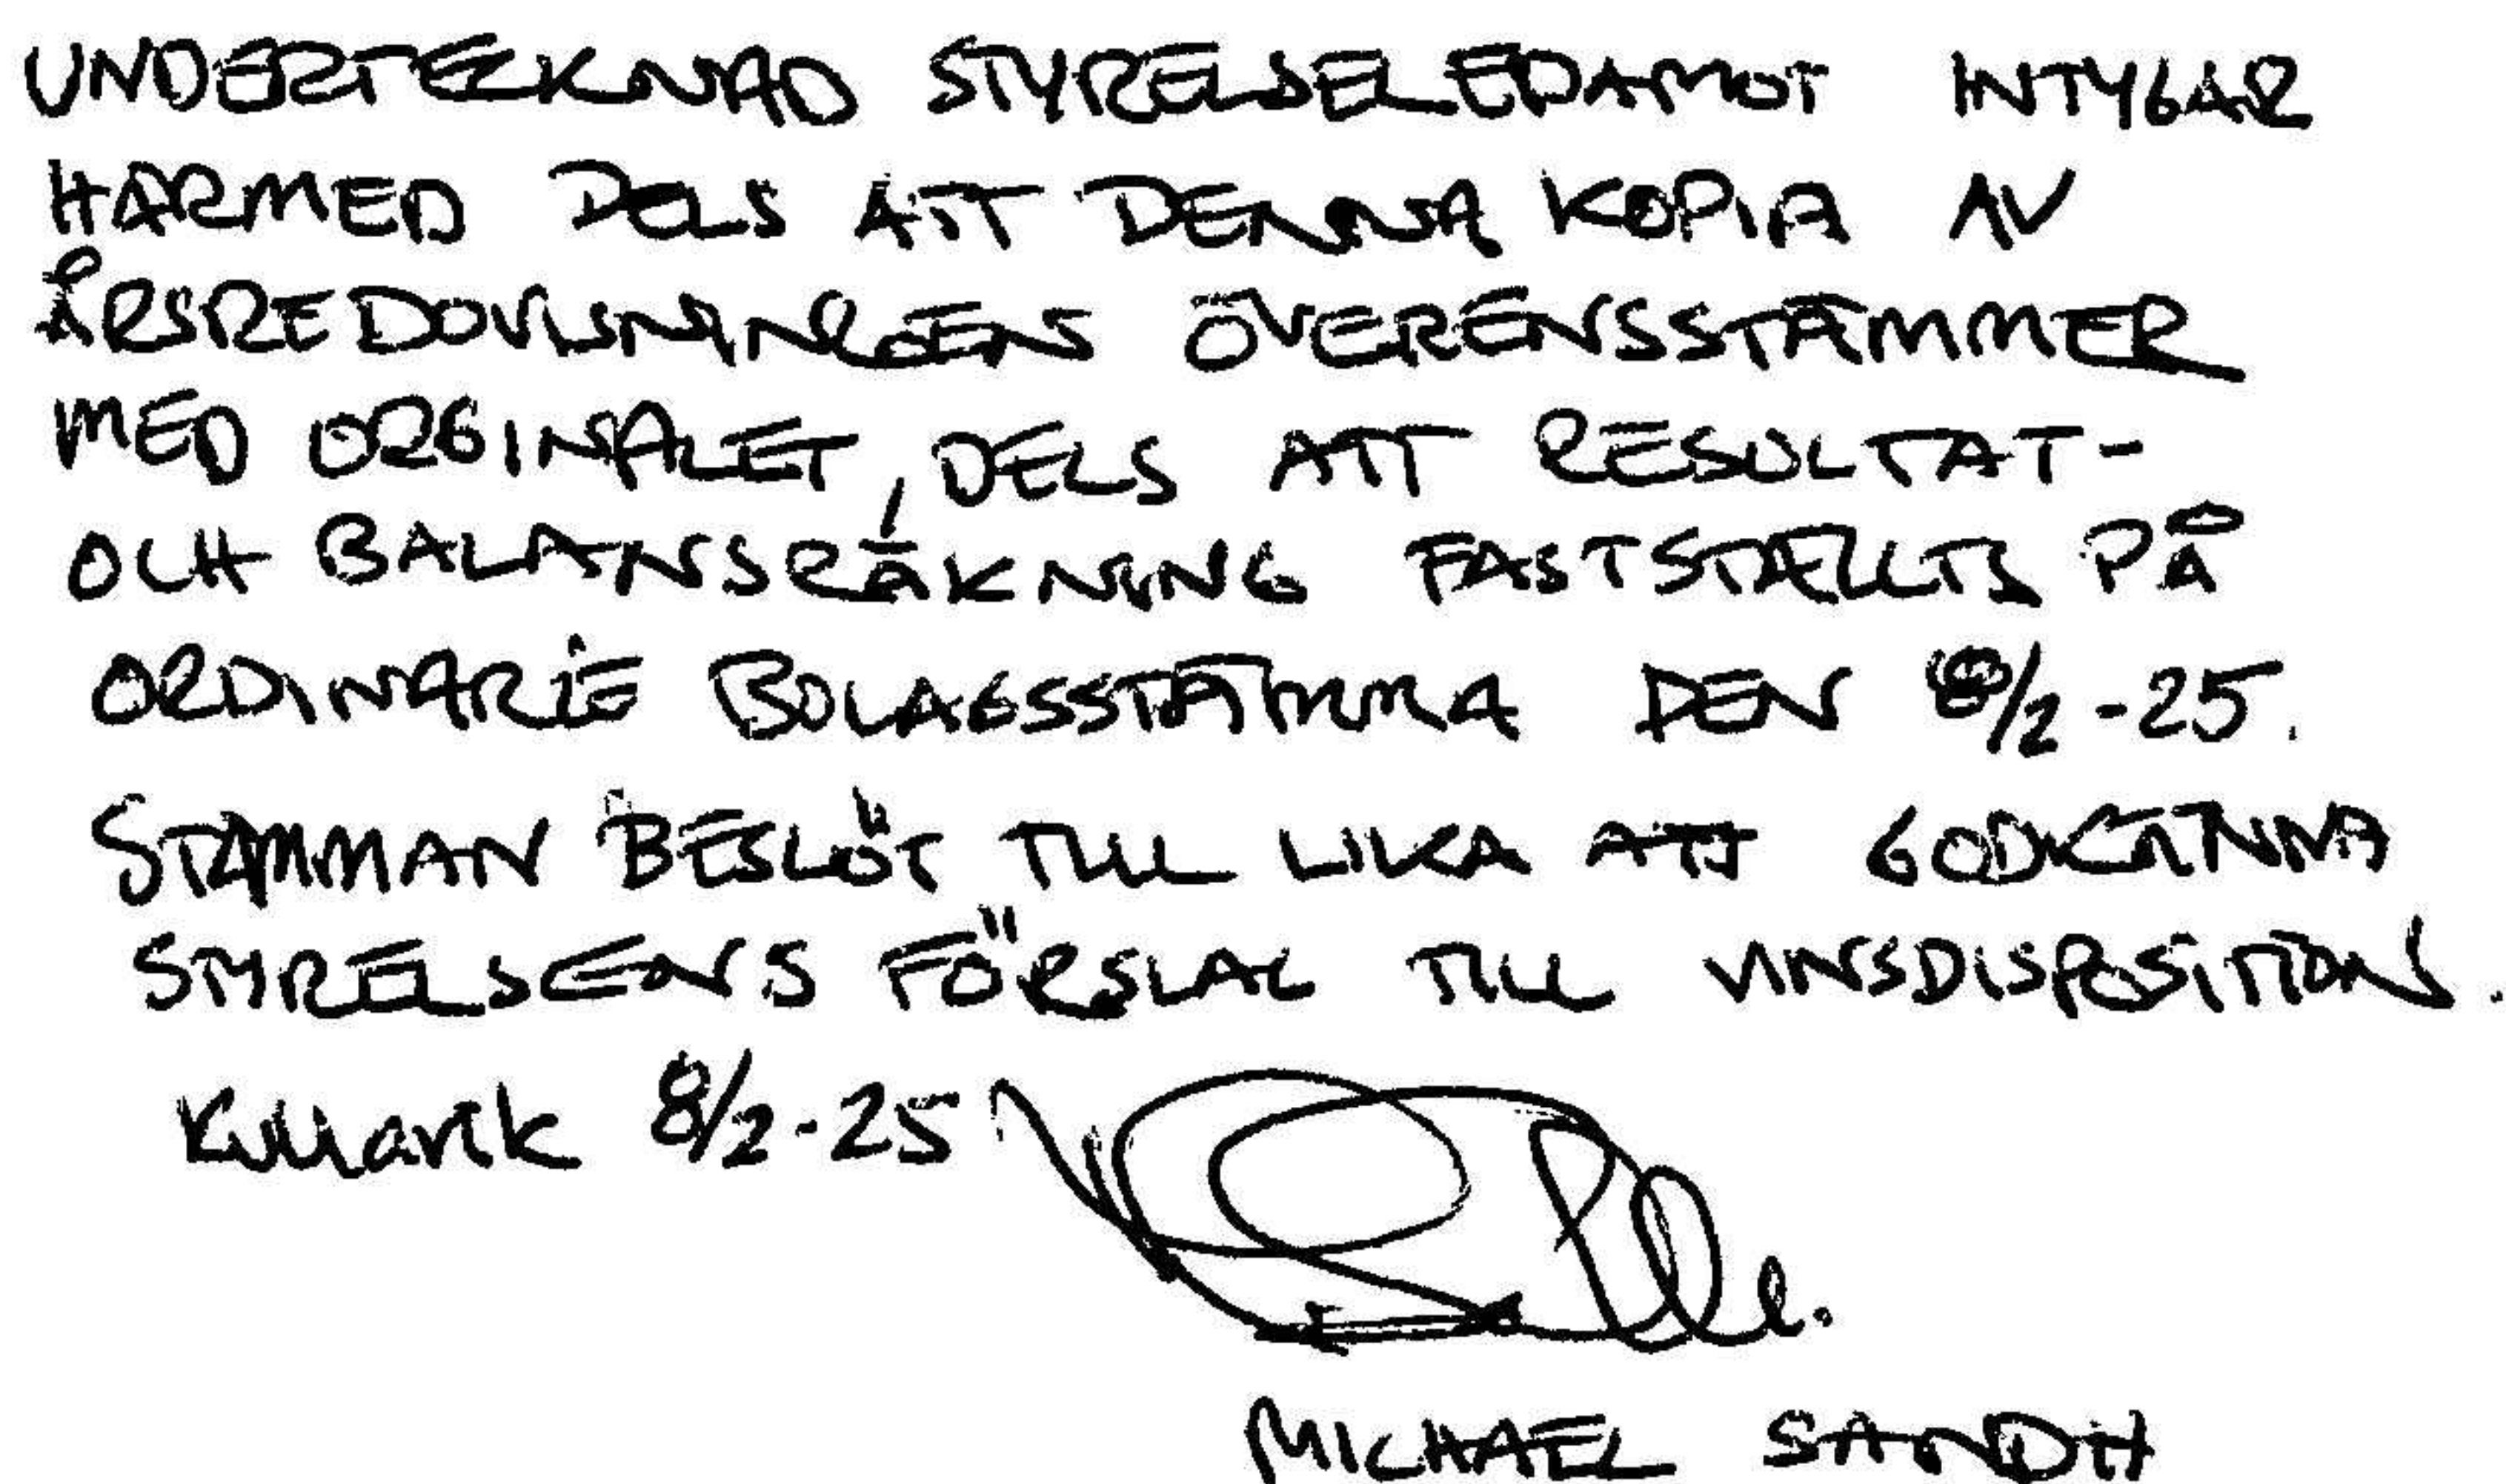 UNDERTECKNAD STYRELSELEDAMOT INTYGAR
HÄRMED DELS ATT DENNA KOPIA AV
ÅRSREDOVISNINGEN ÖVERENSSTÄMMER
MED ORGINALET, DELS ATT RESULTAT-
OCH BALANSRÄKNING FASTSTÄLLTS PÅ
ORDINARIE BOLAGSSTÄMMA DEN 8/2-25.
STÄMMAN BESLÖT TILL LIKA ATT GODKÄNNA
STYRELSENS FÖRSLAG TILL VINSDISPOSITION.
Kullavik 8/2-25
MICHAEL SANDH